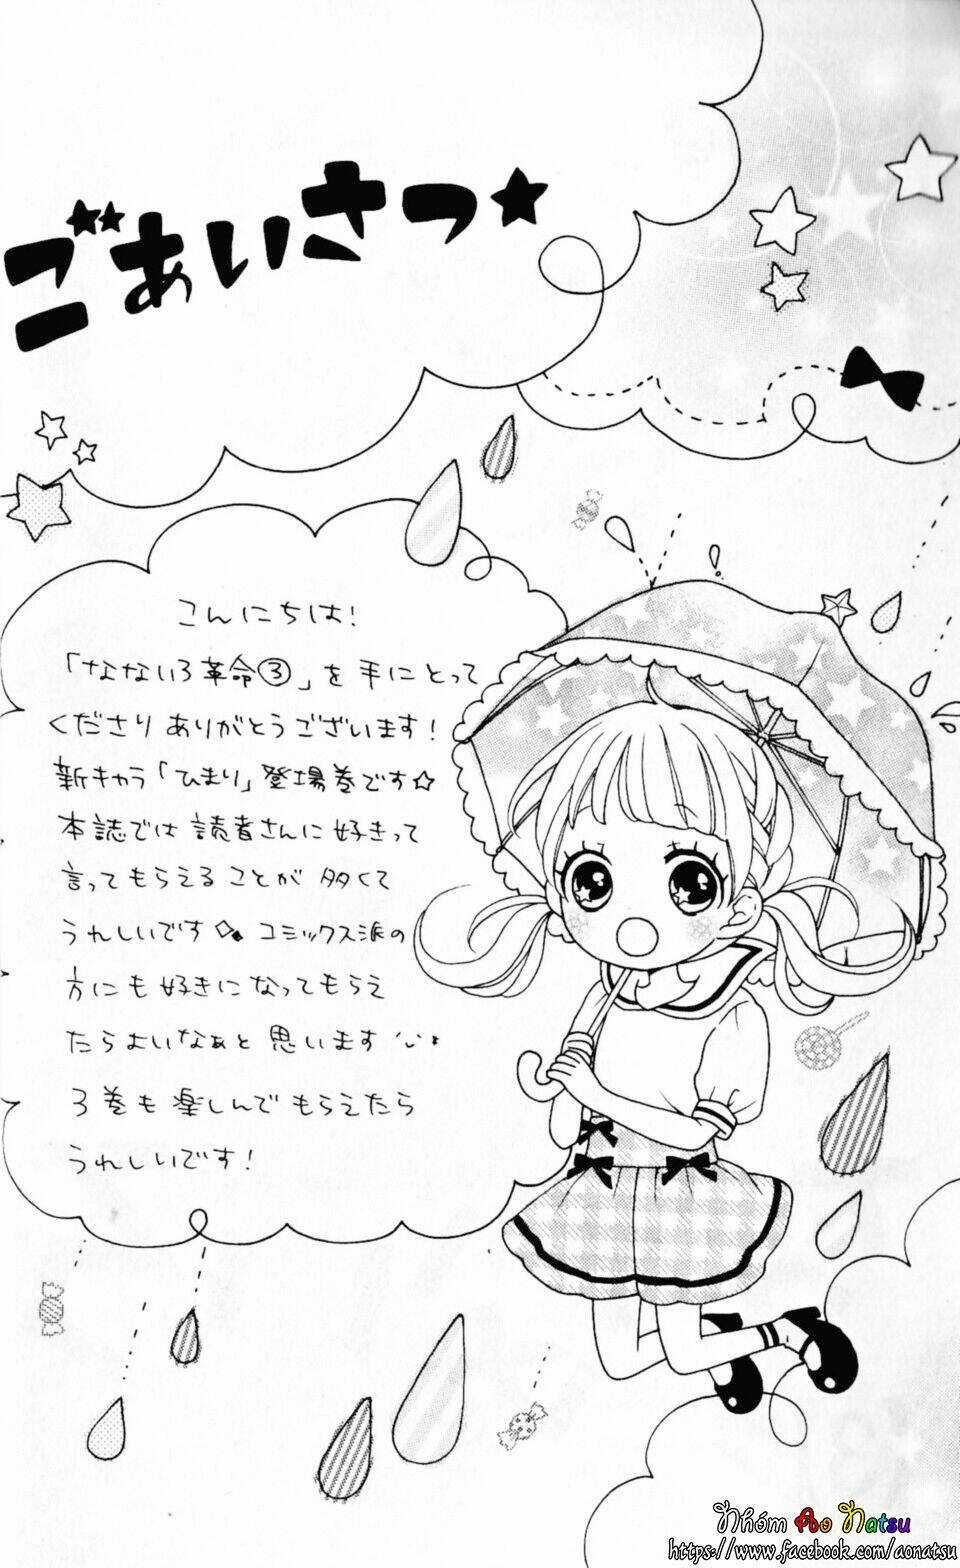 ごあいさつ★
こんにちは!
「なないろ革命③」を手にとって
くださりありがとうございます!
新キャラ「ひまり」登場巻です☆
本誌では読者さんに好きって
言ってもらえることが多くて
うれしいです◇◆ コミックス派の
方にも好きになってもらえ
たらよいなぁと思います
3巻も楽しんでもらえたら
うれしいです!
Nhóm Ao Natsu
https://www.facebook.com/aonatsu